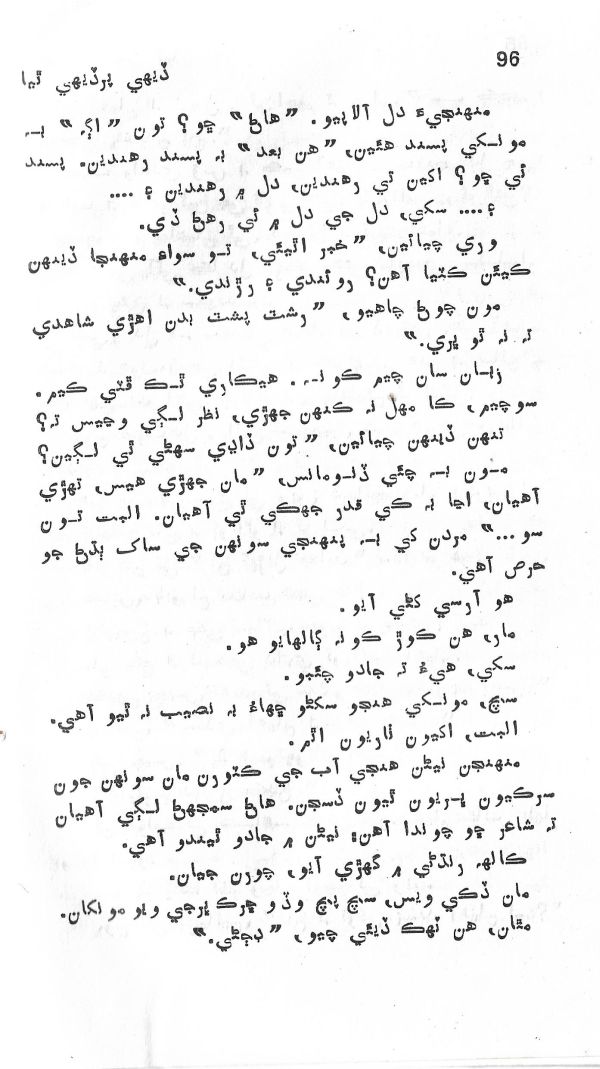 96
ڏيهي پرڏيهي ٿيا
منهنجيءَ دل آلاپيو. ”هاڻ“ ڇو؟ تون ”اڳ“ بہ
مونکي پسند هئين، ”هن بعد“ بہ پسند رهندين. پسند
ئي ڇو؟ اکين تي رهندين، دل ۾ رهندين ۽ ....
۽.... سکي، دل جي دل ۾ ئي رهڻ ڏي.
وري چيائين، ”خبر اٿيئي، تو سواءِ منهنجا ڏينهن
ڪيئن ڪٽيا آهن؟ روئندي ۽ رڙندي.“
مون چوڻ چاهيو، ”رشت پشت بدن اهڙي شاهدي
تہ نہ ٿو ڀري.“
زبان سان چيم ڪونہ. هيڪاري ٽڪ ڦٽي ڪيم.
سوچيم، ڪا مهل نہ ڪنهن جهڙي، نظر لڳي وڃيس تہ؟
تنهن ڏينهن چيائين، ”تون ڏاڍي سهڻي ٿي لڳين؟
مون بہ چٿي ڏنومانس، ”مان جهڙي هيس، تهڙي
آهيان، اڃا بہ ڪي قدر جهڪي ٿي آهيان. البت تون
سو...“ مردن کي بہ پنهنجي سونهن جي ساک ٻڌڻ جو
حرص آهي.
هو آرسي کڻي آيو.
مار، هن ڪوڙ ڪونہ ڳالهايو هو.
سکي، هيءُ تہ جادو چئبو.
سچ، مونکي هنجو سکڻو ڇهاءُ بہ نصيب نہ ٿيو آهي.
البت، اکيون ٺاريون اٿم.
منهنجن نيڻن هنجي آب جي ڪٽورن مان سونهن جون
سرڪيون ڀريون ٿيون ڏسجن. هاڻ سمجهڻ لڳي آهيان
تہ شاعر ڇو چوندا آهن: نيڻن ۾ جادو ٿيندو آهي.
ڪالهہ رنڌڻي ۾ گهڙي آيو، چورن جيان.
مان ڏڪي ويس، سچ پچ وڏو ڇرڪ ڀرجي ويو مونکان.
مٿان، هن ٽهڪ ڏيئي چيو، ”ڊڄڻي.“